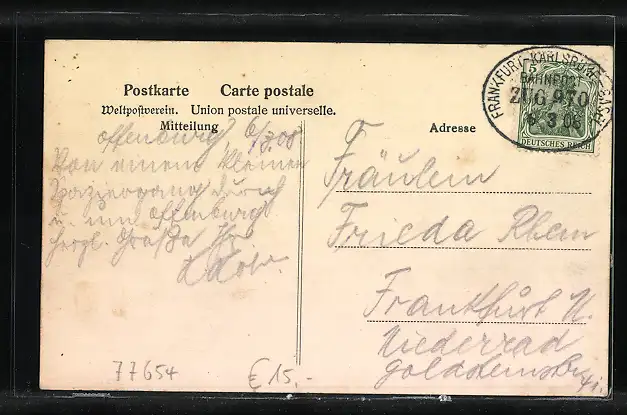 Postkarte Carte postale
Weltpostverein. Union postale universelle.
Mitteilung
Offenburg 6/3.08
Von einem kleinen
Spaziergang durch
u. um Offenburg
herzl. Grüße
Adresse
Fräulein
Frieda Rhein
Frankfurt
Niederrad
FRANKFURT-KARLSRUHE-BASEL
BAHNPOST
ZUG 970
6 3 08
5
DEUTSCHES REICH
77654
€ 15.-